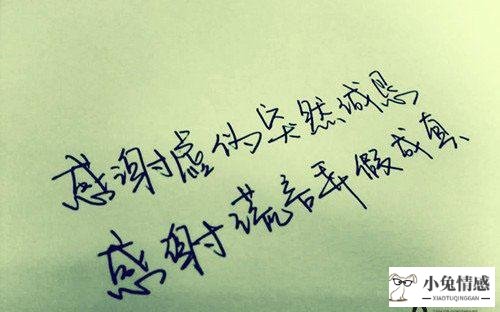 感谢虚伪突然诚恳
感谢谎言弄假成真
小兔情感
XIAOTUQINGGAN